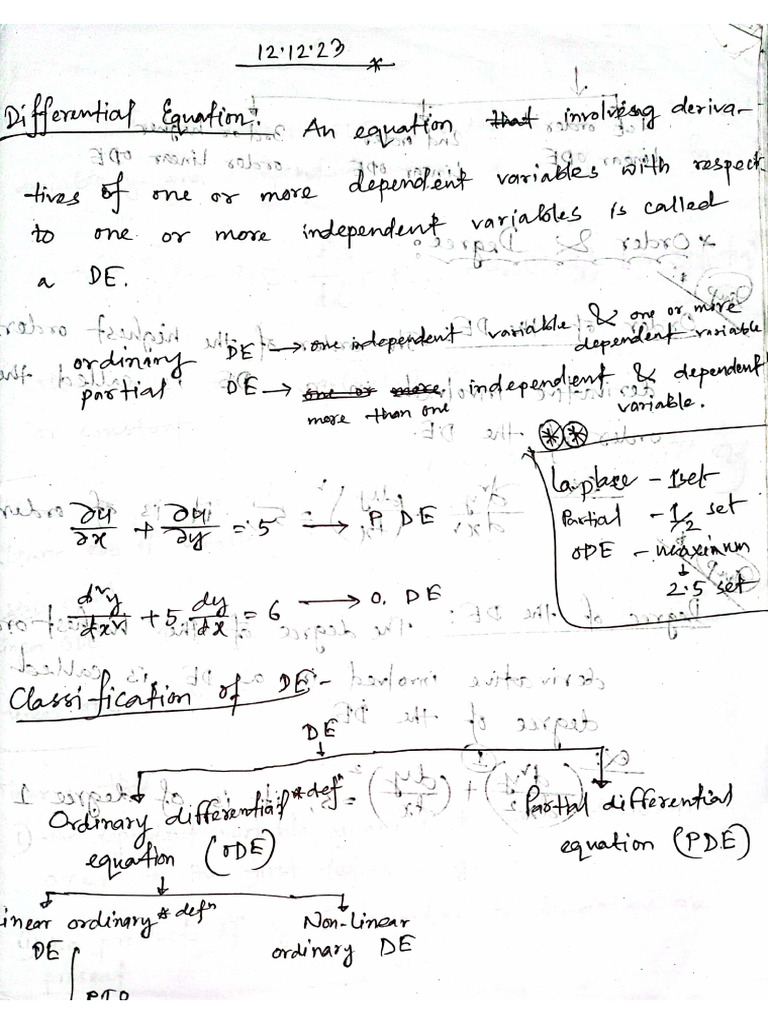 12.12.23
*
Differential Equation: An equation ~~that~~ involving deriva-
tives of one or more dependent variables with respect
to one or more independent variables is called
a DE.
ordinary DE → one independent variable & one or more
dependent variable
partial DE → ~~one or more~~ independent & dependent
more than one variable.
⊛⊛
Laplace - 1 set
Partial - 1/2 set
ODE - maximum
↓
2.5 set
∂u/∂x + ∂u/∂y = 5 → P. DE
d²y/dx² + 5 dy/dx = 6 → O. DE
Classification of DE-
DE
Ordinary differential * defⁿ
equation (ODE)
Partial differential
equation (PDE)
inear ordinary * defⁿ
DE
Non-linear
ordinary DE
PTO